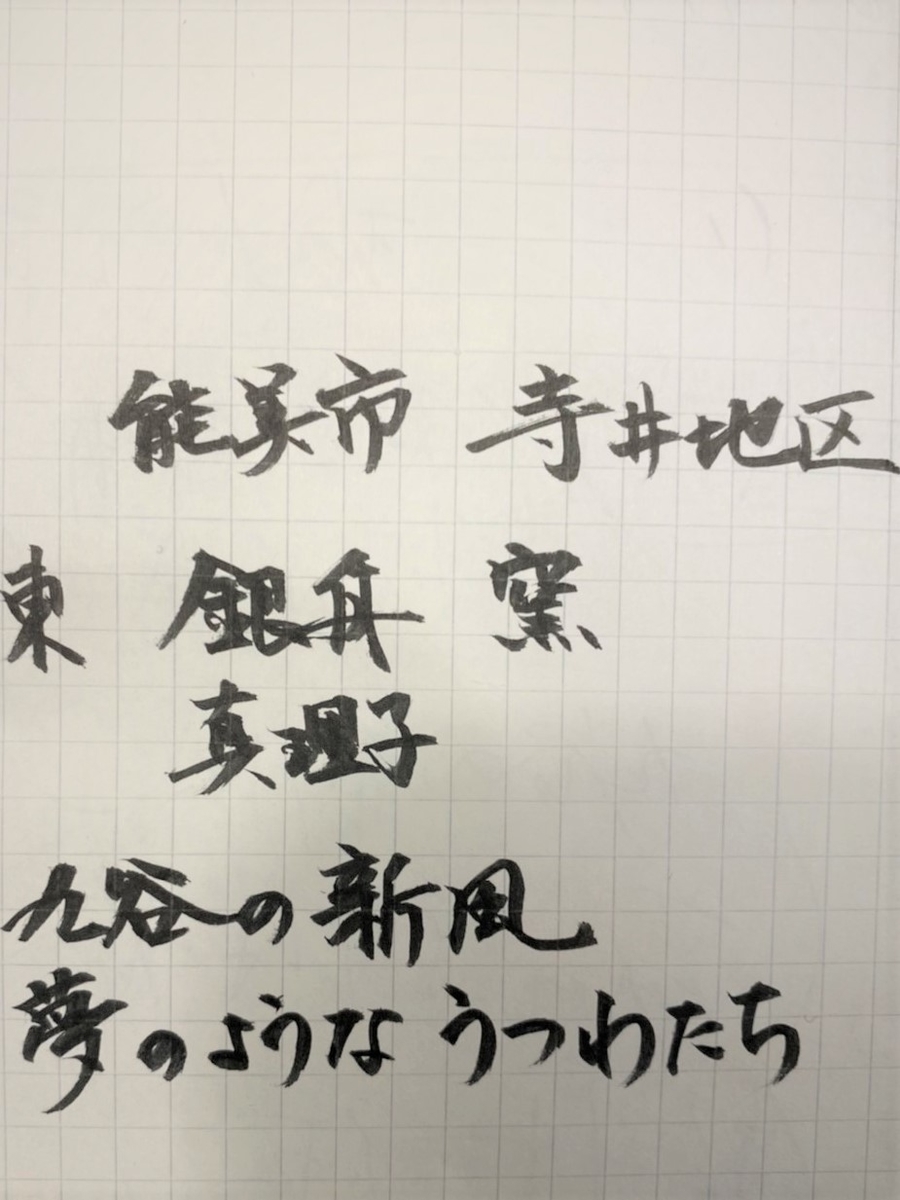 能美市 寺井地区
東 銀舟 窯
真理子
九谷の新風
夢のような うつわたち